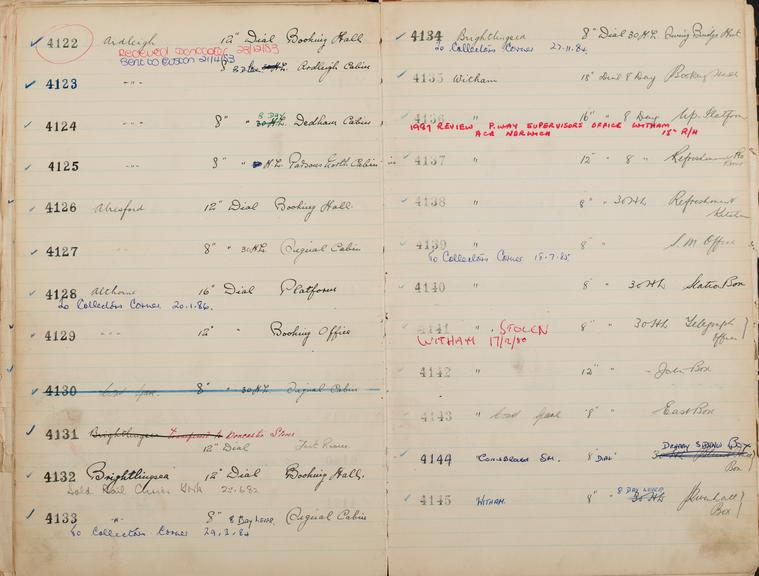 4122 Ardleigh 12" Dial Booking Hall
Received Doncaster 23/12/83
Sent to Euston 21/4/83
4123 " " " 8 Day Ardleigh Cabin
4124 " " " 8" " 8 Day 30 Hr. Dedham Cabin
4125 " " " 8" " Hr. Parsons Heath Cabin
4126 Alresford 12" Dial Booking Hall.
4127 " " 8" " 30 Hr. Signal Cabin
4128 Althorne 16" Dial Platform
To Collectors Corner 20.1.86.
4129 " " " 12" " Booking Office
4130 8" " 30 Hr. Signal Cabin
4131 Brightlingsea Transfered to Doncaster Stores
12" Dial
4132 Brightlingsea 12" Dial Booking Hall.
Sold Rail Chester York 22.682
4133 " 8" 8 Day Lever. Signal Cabin
To Collectors Corner 29.3.84
4134 Brightlingsea 8" Dial 30 Hr. Swing Bridge Hut
To Collectors Corner 27.11.84
4135 Witham 18" Dial 8 Day Booking
4136 " 16" " 8 Day Up Platform
1987 REVIEW P.WAY SUPERVISORS OFFICE WITHAM
ACR NORWICH 18" R/H
4137 " 12" " 8 " Refreshment Rm
4138 " 8" " 30 Hr Refreshment Kitchen
4139 " 8" " S.M Office
To Collectors Corner 15.7.85
4140 " 8" 30 Hr Station Box
4141 " STOLEN 8" 30 Hr Telegraph Office
WITHAM 17/12/80
4142 " 12" " John Box
4143 " 8" East Box
4144 SM. 8" DIAL Box
4145 WITHAM. 8" " 8 DAY LEVER 30 Hr Box